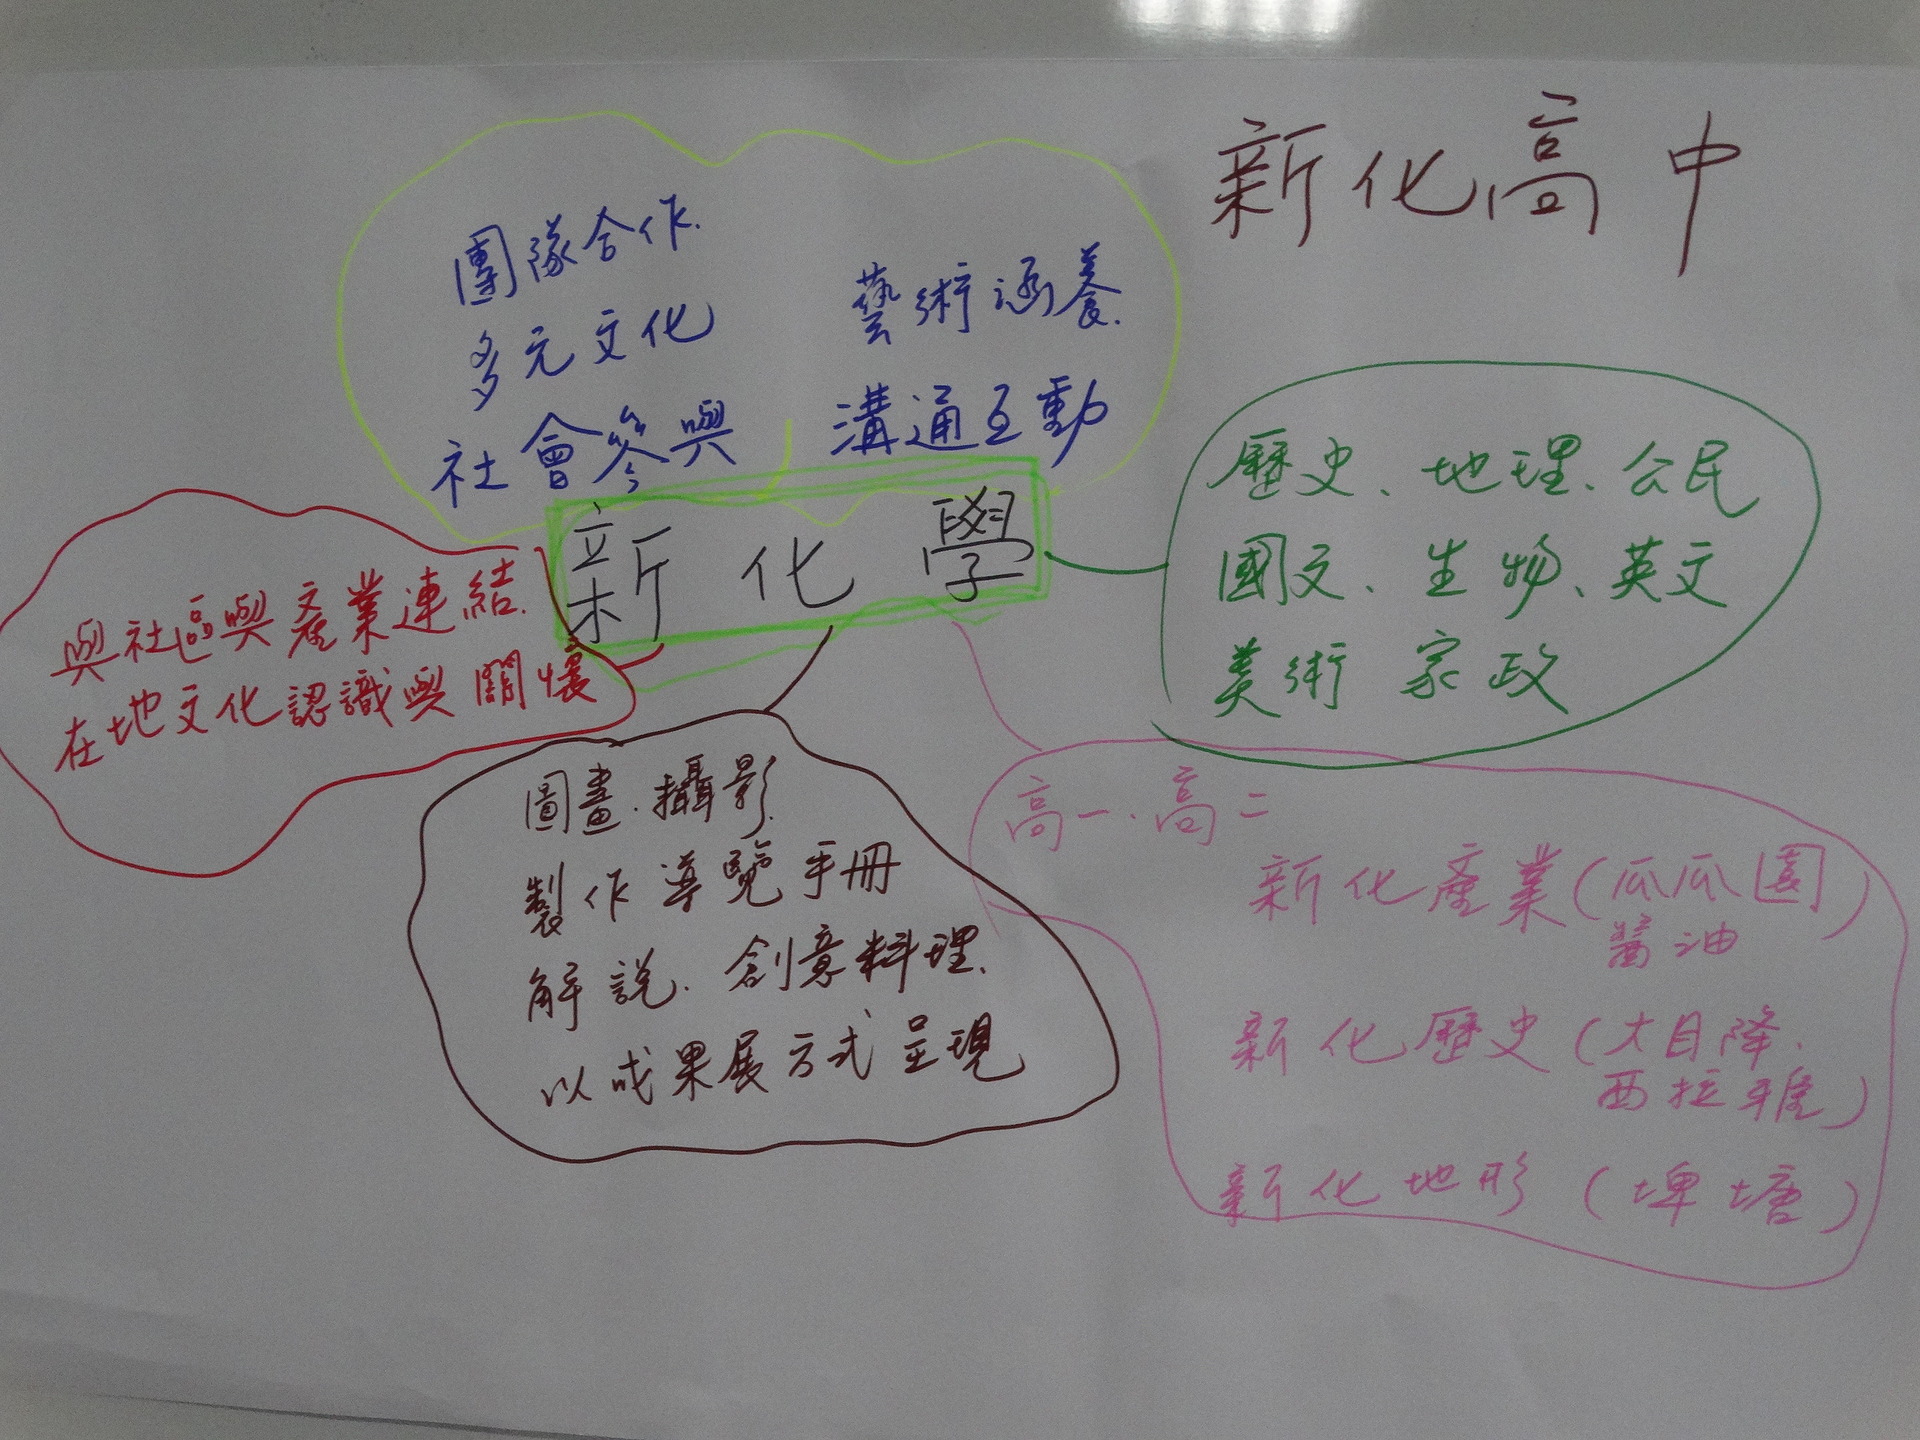 新化高中
團隊合作、
多元文化
社會參與
藝術涵養、
溝通互動
新化學
歷史、地理、公民
國文、生物、英文
美術 家政
與社區與產業連結、
在地文化認識與關懷
圖畫、攝影、
製作導覽手冊
解說、創意料理、
以成果展方式呈現
高一、高二
新化產業(瓜瓜園
醬油)
新化歷史(大目降、
西拉雅)
新化地形(埤塘)